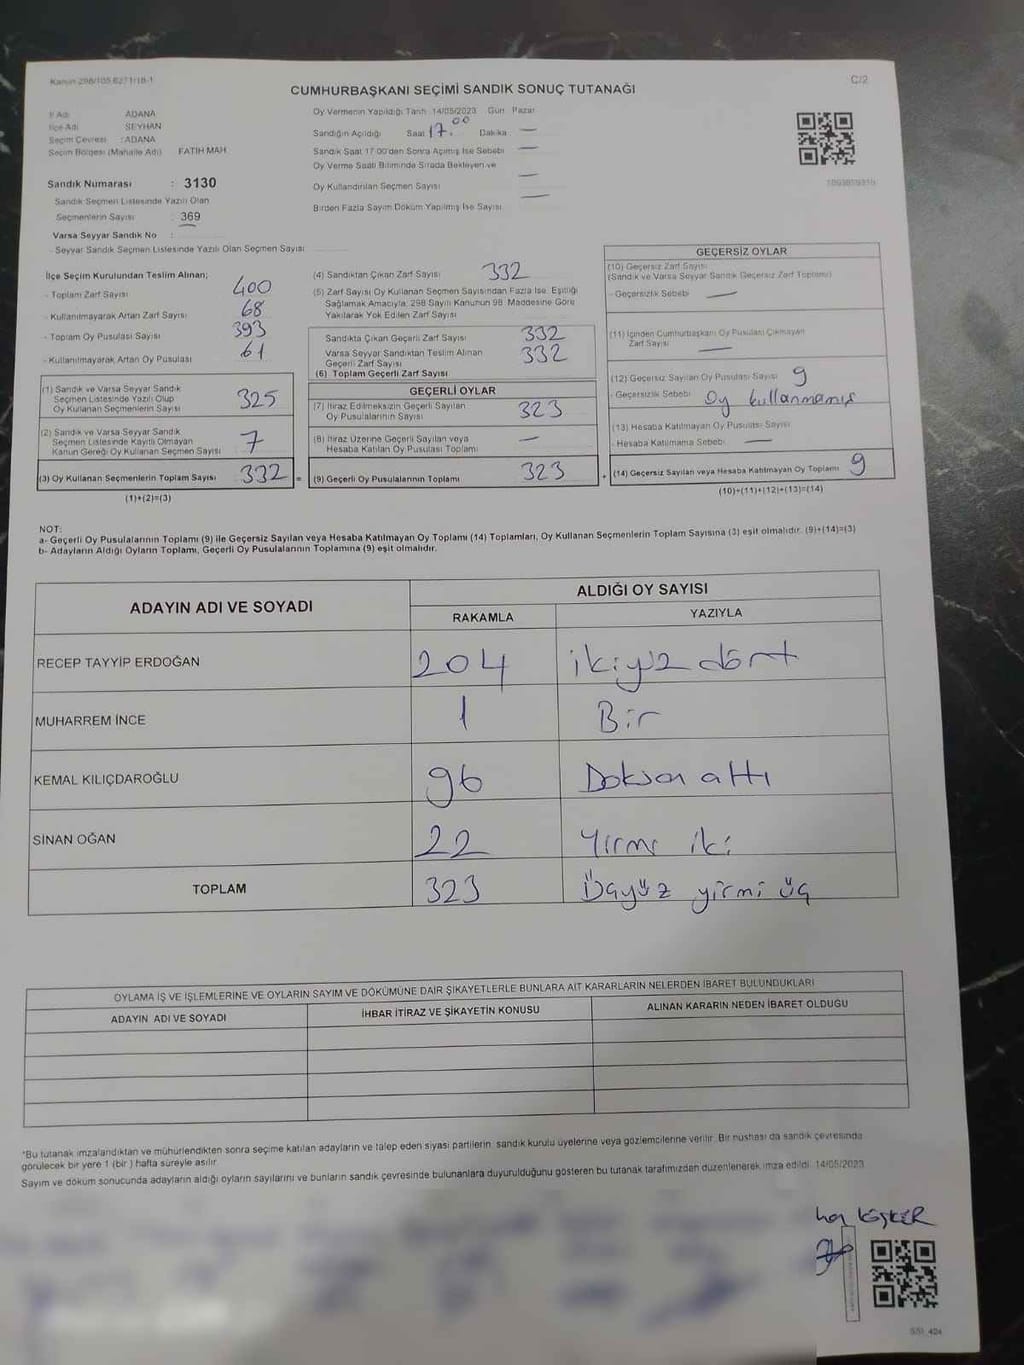 Kanun 298/105 6271/18-1
C/2
CUMHURBAŞKANI SEÇİMİ SANDIK SONUÇ TUTANAĞI
İl Adı ADANA
İlçe Adı SEYHAN
Seçim Çevresi : ADANA
Seçim Bölgesi (Mahalle Adı) FATİH MAH.
Sandık Numarası : 3130
Sandık Seçmen Listesinde Yazılı Olan
Seçmenlerin Sayısı : 369
Varsa Seyyar Sandık No :
- Seyyar Sandık Seçmen Listesinde Yazılı Olan Seçmen Sayısı
Oy Vermenin Yapıldığı Tarih 14/05/2023 Gün Pazar
Sandığın Açıldığı Saat 17.00 Dakika —
Sandık Saat 17:00'den Sonra Açılmış İse Sebebi —
Oy Verme Saati Bitiminde Sırada Bekleyen ve
Oy Kullandırılan Seçmen Sayısı —
Birden Fazla Sayım Döküm Yapılmış İse Sayısı —
İlçe Seçim Kurulundan Teslim Alınan;
- Toplam Zarf Sayısı 400
- Kullanılmayarak Artan Zarf Sayısı 68
- Toplam Oy Pusulası Sayısı 393
- Kullanılmayarak Artan Oy Pusulası 61
(1) Sandık ve Varsa Seyyar Sandık
Seçmen Listesinde Yazılı Olup
Oy Kullanan Seçmenlerin Sayısı 325
(2) Sandık ve Varsa Seyyar Sandık
Seçmen Listesinde Kayıtlı Olmayan
Kanun Gereği Oy Kullanan Seçmen Sayısı 7
(3) Oy Kullanan Seçmenlerin Toplam Sayısı 332 =
(1)+(2)=(3)
(4) Sandıktan Çıkan Zarf Sayısı 332
(5) Zarf Sayısı Oy Kullanan Seçmen Sayısından Fazla İse, Eşitliği
Sağlamak Amacıyla, 298 Sayılı Kanunun 98. Maddesine Göre
Yakılarak Yok Edilen Zarf Sayısı
Sandıkta Çıkan Geçerli Zarf Sayısı 332
Varsa Seyyar Sandıktan Teslim Alınan
Geçerli Zarf Sayısı 332
(6) Toplam Geçerli Zarf Sayısı
GEÇERLİ OYLAR
(7) İtiraz Edilmeksizin Geçerli Sayılan
Oy Pusulalarının Sayısı 323
(8) İtiraz Üzerine Geçerli Sayılan veya
Hesaba Katılan Oy Pusulası Toplamı —
(9) Geçerli Oy Pusulalarının Toplamı 323 +
GEÇERSİZ OYLAR
(10) Geçersiz Zarf Sayısı
(Sandık ve Varsa Seyyar Sandık Geçersiz Zarf Toplamı)
- Geçersizlik Sebebi —
(11) İçinden Cumhurbaşkanı Oy Pusulası Çıkmayan
Zarf Sayısı —
(12) Geçersiz Sayılan Oy Pusulası Sayısı 9
- Geçersizlik Sebebi Oy kullanmamış
(13) Hesaba Katılmayan Oy Pusulası Sayısı
- Hesaba Katılmama Sebebi —
(14) Geçersiz Sayılan veya Hesaba Katılmayan Oy Toplamı 9
(10)+(11)+(12)+(13)=(14)
NOT:
a- Geçerli Oy Pusulalarının Toplamı (9) ile Geçersiz Sayılan veya Hesaba Katılmayan Oy Toplamı (14) Toplamları, Oy Kullanan Seçmenlerin Toplam Sayısına (3) eşit olmalıdır. (9)+(14)=(3)
b- Adayların Aldığı Oyların Toplamı, Geçerli Oy Pusulalarının Toplamına (9) eşit olmalıdır.
ADAYIN ADI VE SOYADI
ALDIĞI OY SAYISI
RAKAMLA YAZIYLA
RECEP TAYYİP ERDOĞAN 204 ikiyüz dört
MUHARREM İNCE 1 Bir
KEMAL KILIÇDAROĞLU 96 Doksan altı
SİNAN OĞAN 22 Yirmi iki
TOPLAM 323 Üçyüz yirmi üç
OYLAMA İŞ VE İŞLEMLERİNE VE OYLARIN SAYIM VE DÖKÜMÜNE DAİR ŞİKAYETLERLE BUNLARA AİT KARARLARIN NELERDEN İBARET BULUNDUKLARI
ADAYIN ADI VE SOYADI İHBAR İTİRAZ VE ŞİKAYETİN KONUSU ALINAN KARARIN NEDEN İBARET OLDUĞU
*Bu tutanak imzalandıktan ve mühürlendikten sonra seçime katılan adayların ve talep eden siyasi partilerin, sandık kurulu üyelerine veya gözlemcilerine verilir. Bir nüshası da sandık çevresinde
görülecek bir yere 1 (bir) hafta süreyle asılır.
Sayım ve döküm sonucunda adayların aldığı oyların sayılarını ve bunların sandık çevresinde bulunanlara duyurulduğunu gösteren bu tutanak tarafımızdan düzenlenerek imza edildi. 14/05/2023